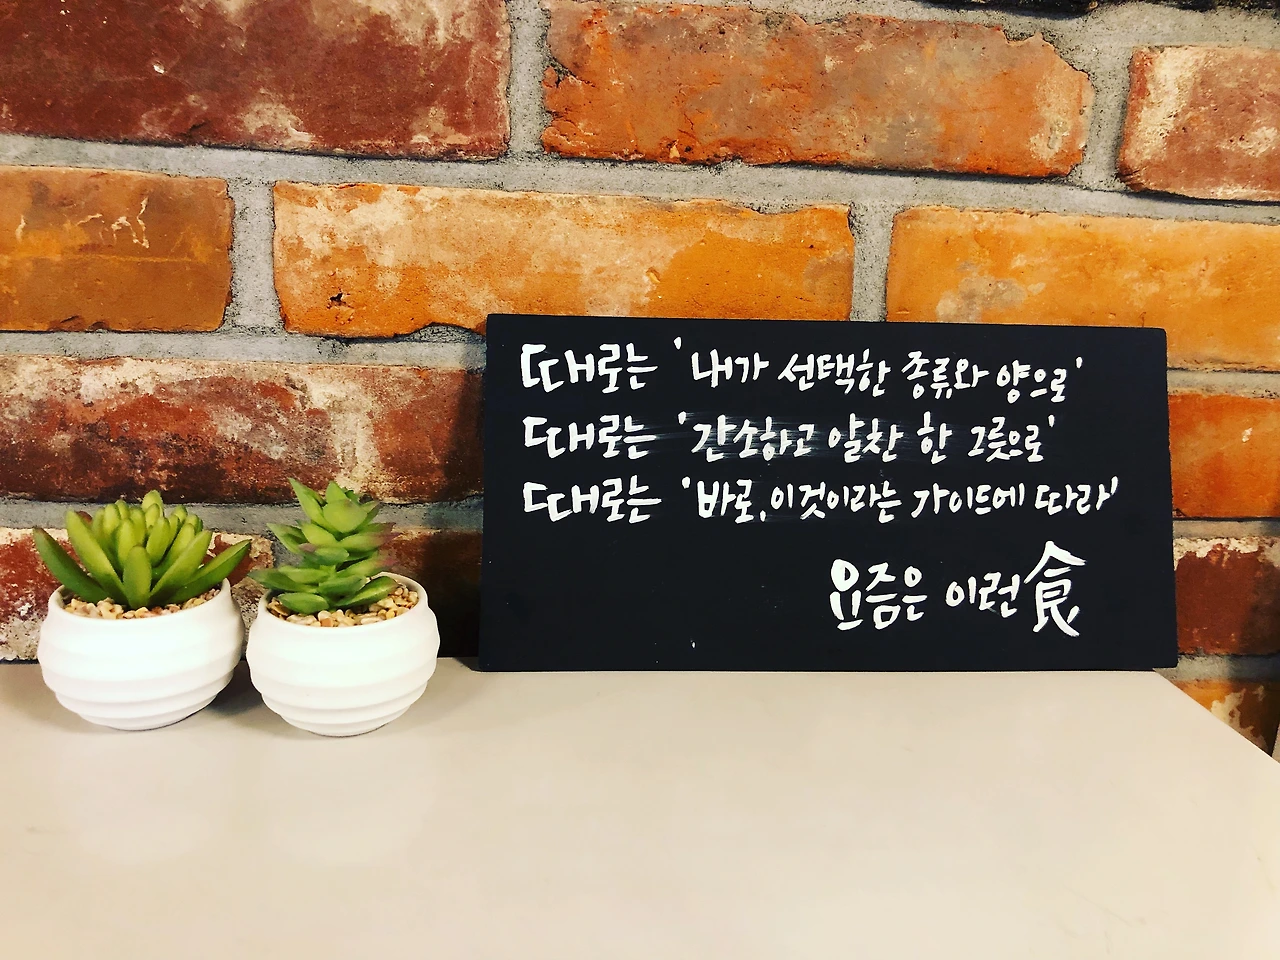 때로는 '내가 선택한 종류와 양으로'
때로는 '간소하고 알찬 한 그릇으로'
때로는 '바로, 이것이라는 가이드에 따라'
요즘은 이런 食